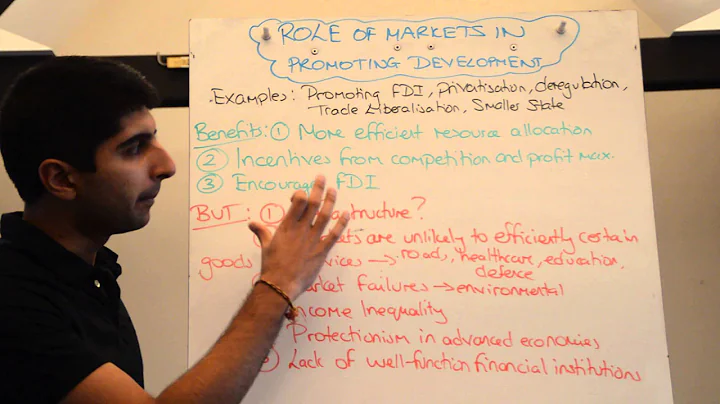 ROLE OF MARKETS IN
PROMOTING DEVELOPMENT
Examples: Promoting FDI, privatisation, deregulation,
Trade Liberalisation, Smaller State
Benefits: ① More efficient resource allocation
② Incentives from competition and profit max.
③ Encourage FDI
BUT: ①
are unlikely to efficiently certain
goods → roads, healthcare, education,
defence
Failures → environmental
Income Inequality
Protectionism in advanced economies
Lack of well-function financial institutions